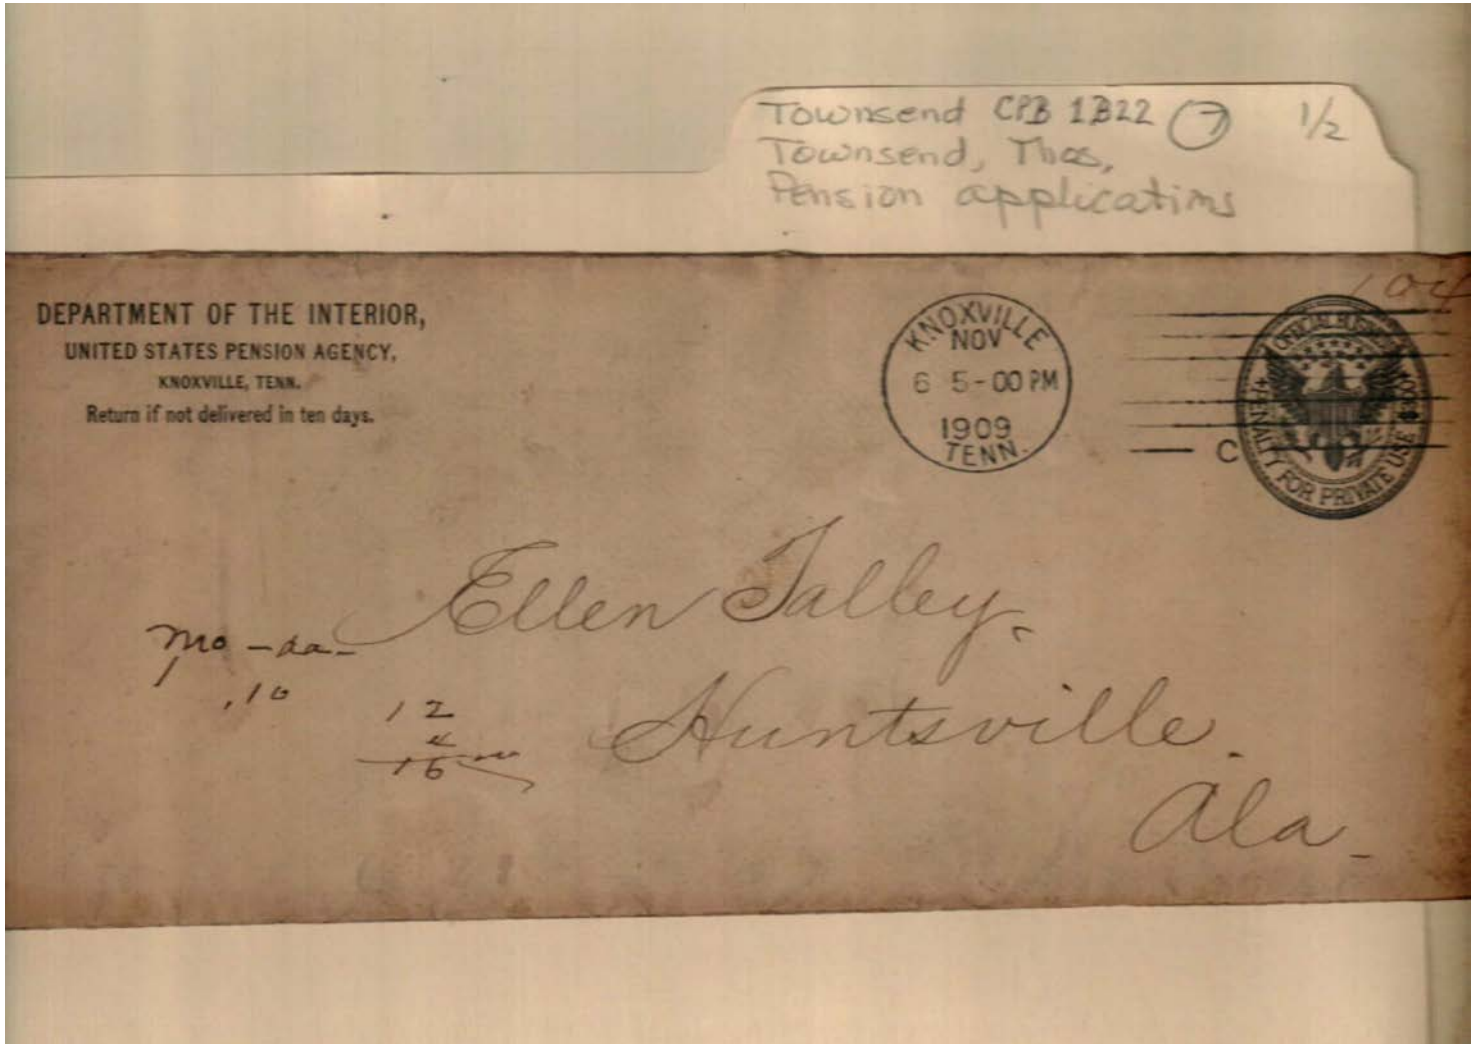 Townsend CPB 1B22 (7) 1/2
Townsend, Thos,
Pension applications
DEPARTMENT OF THE INTERIOR,
UNITED STATES PENSION AGENCY,
KNOXVILLE, TENN.
Return if not delivered in ten days.
KNOXVILLE
NOV
6 5-00 PM
1909
TENN.
C
OFFICIAL BUSINESS
PENALTY FOR PRIVATE USE $300
Ellen Talley.
mo - da -
1 .10
12
4
16
Huntsville.
Ala -